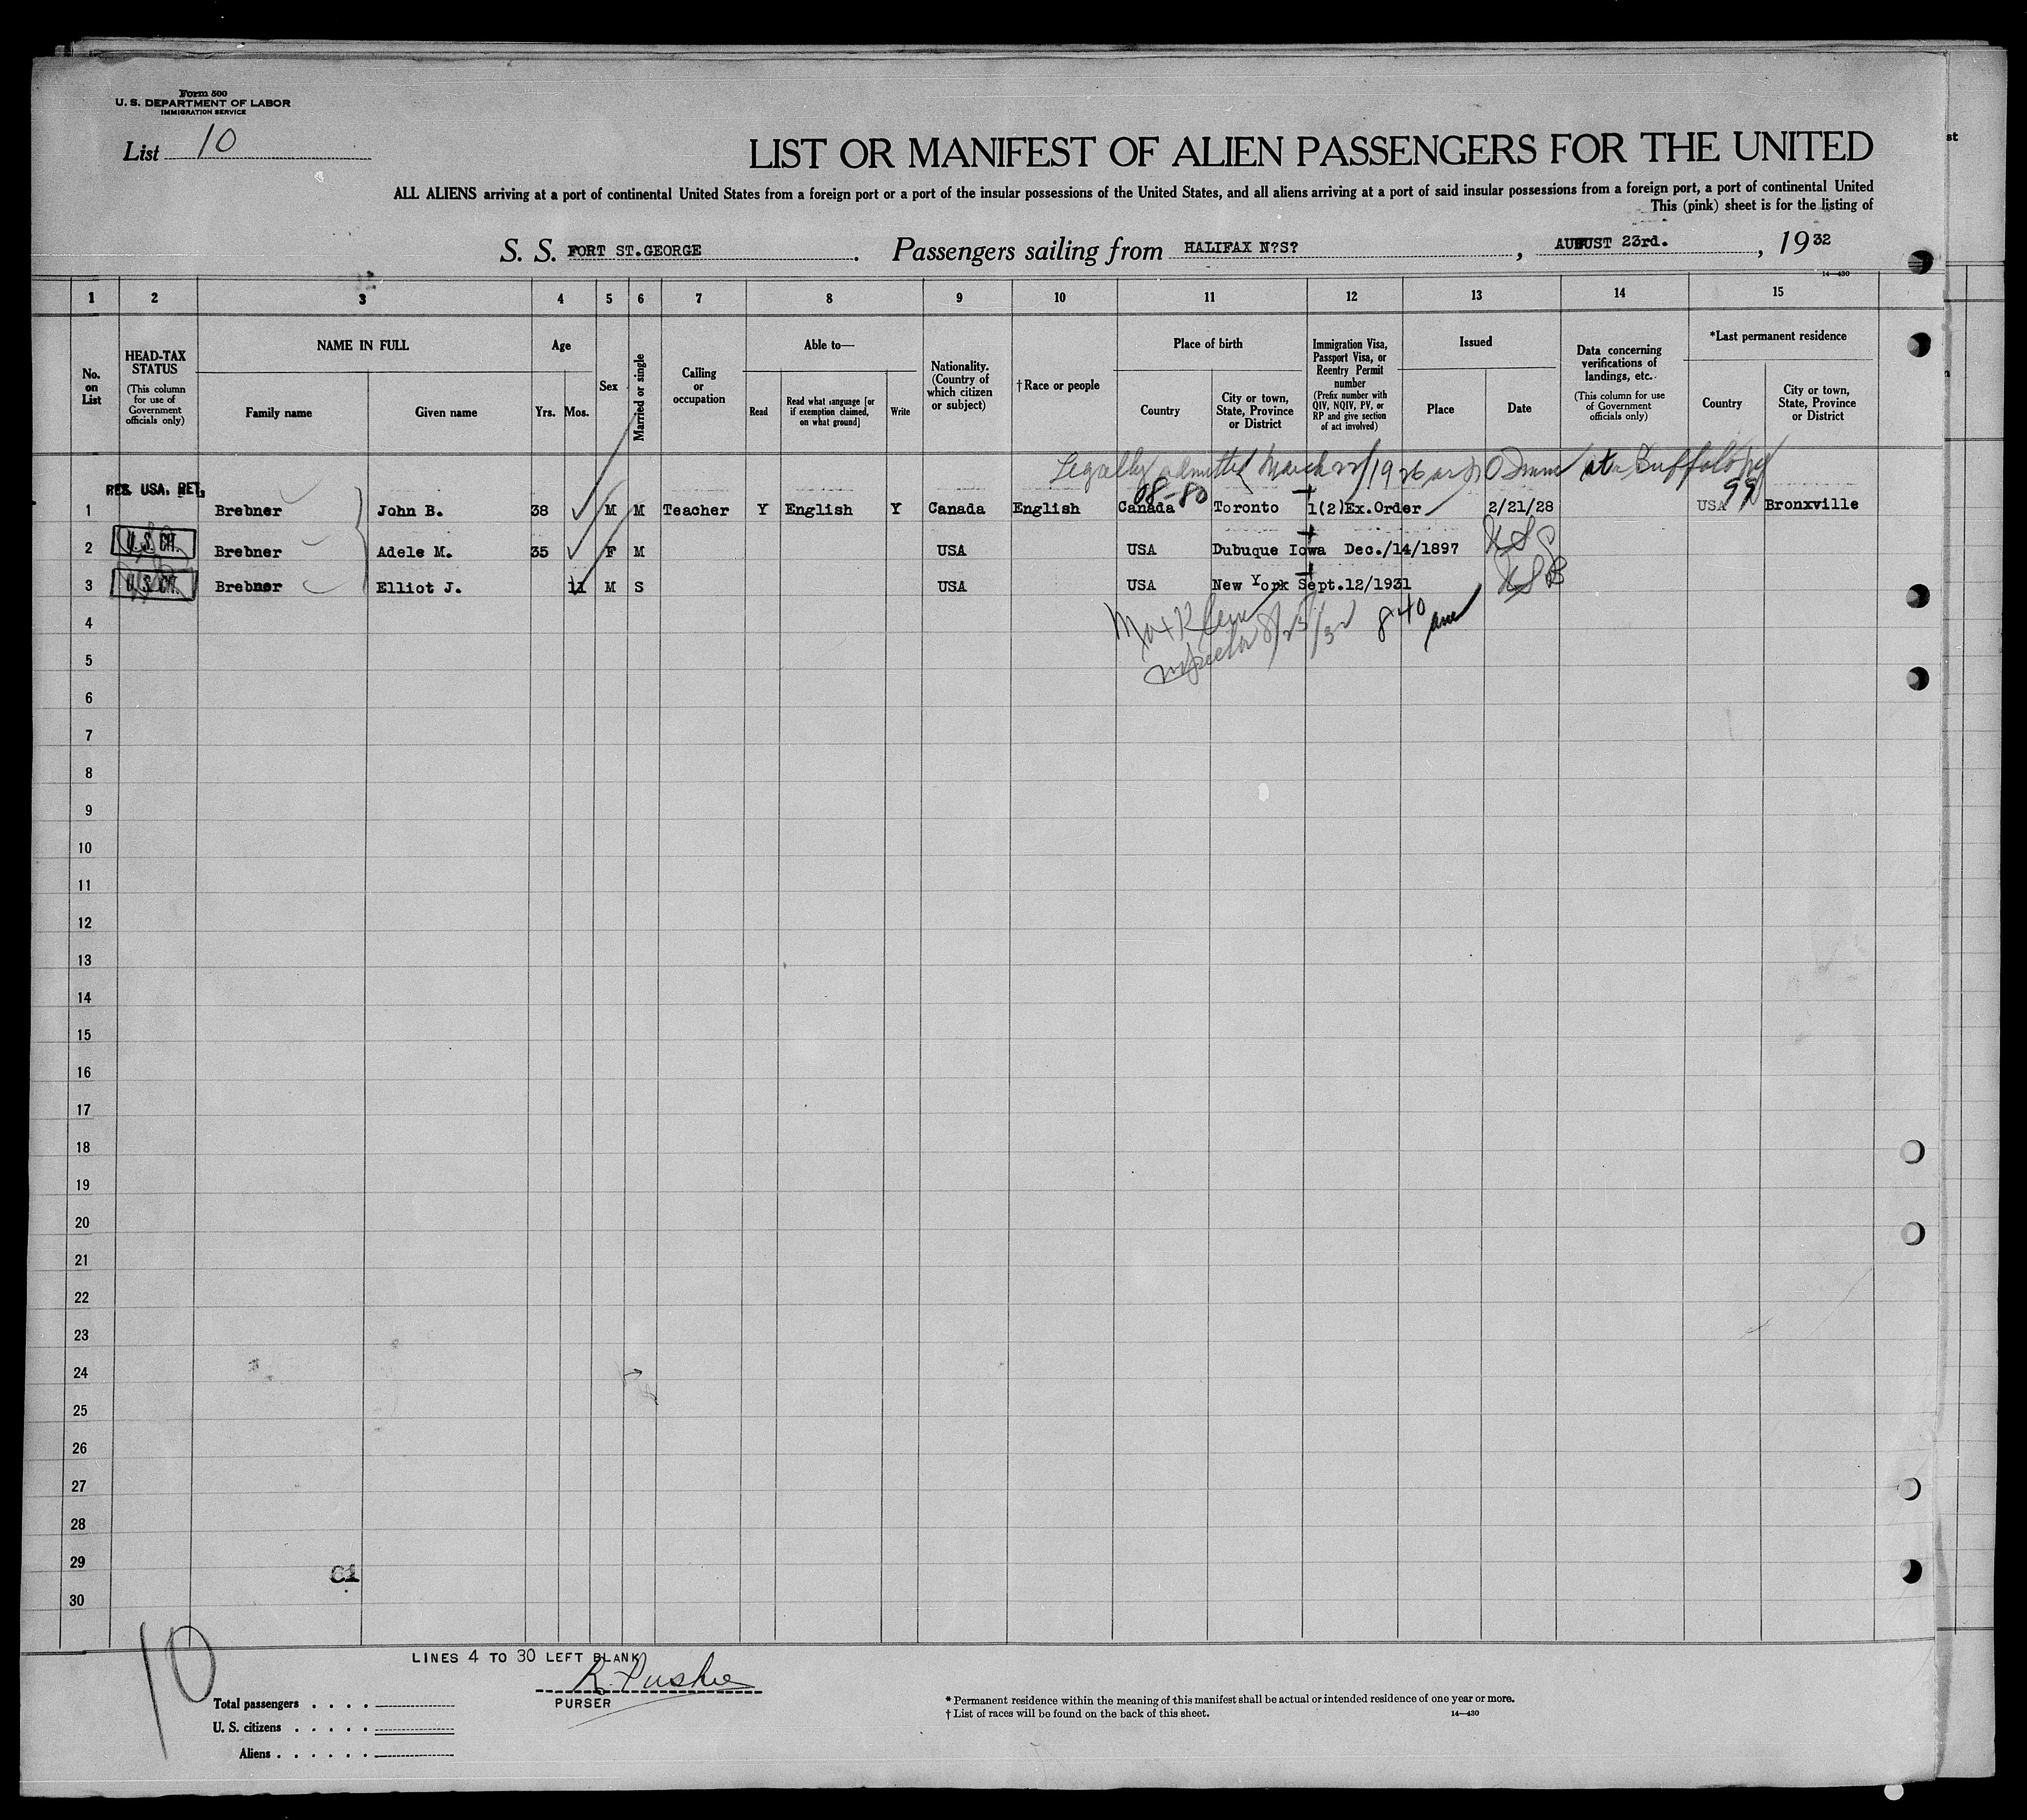 Form 500
U. S. DEPARTMENT OF LABOR
IMMIGRATION SERVICE
List 10
LIST OR MANIFEST OF ALIEN PASSENGERS FOR THE UNITED
st
ALL ALIENS arriving at a port of continental United States from a foreign port or a port of the insular possessions of the United States, and all aliens arriving at a port of said insular possessions from a foreign port, a port of continental United
This (pink) sheet is for the listing of
S. S. FORT ST.GEORGE. Passengers sailing from HALIFAX N?S?, AUGUST 23rd., 1932
14—430
1 2 3 4 5 6 7 8 9 10 11 12 13 14 15
No. on List
HEAD-TAX STATUS (This column for use of Government officials only)
NAME IN FULL
Family name Given name
Age
Yrs. Mos.
Sex
Married or single
Calling or occupation
Able to—
Read Read what language [or if exemption claimed, on what ground] Write
Nationality. (Country of which citizen or subject)
†Race or people
Place of birth
Country City or town, State, Province or District
Immigration Visa, Passport Visa, or Reentry Permit number (Prefix number with QIV, NQIV, PV, or RP and give section of act involved)
Issued
Place Date
Data concerning verifications of landings, etc. (This column for use of Government officials only)
*Last permanent residence
Country City or town, State, Province or District
Legally admitted March 22/1926 at Buffalo NY
RES. USA. RET.
08-80 99
1 Brebner John B. 38 M M Teacher Y English Y Canada English Canada Toronto 1(2)Ex.Order 2/21/28 USA Bronxville
2 U.S. CIT. Brebner Adele M. 35 F M USA USA Dubuque Iowa Dec./14/1897
3 U.S. CIT. Brebner Elliot J. 11 M S USA USA New York Sept.12/1931
4
Inspector 8/25/32 840 am
5
6
7
8
9
10
11
12
13
14
15
16
17
18
19
20
21
22
23
24
25
26
27
28
29
61
30
10
LINES 4 TO 30 LEFT BLANK
PURSER
Total passengers . . . .
U. S. citizens . . . . .
Aliens . . . . . .
* Permanent residence within the meaning of this manifest shall be actual or intended residence of one year or more.
† List of races will be found on the back of this sheet.
14—430